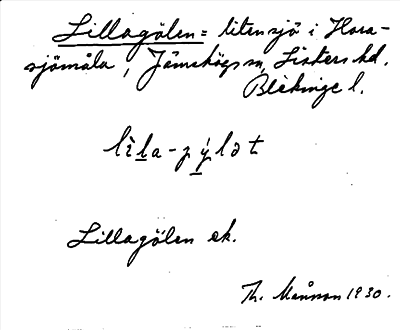 Lillagölen = liten sjö i Hora-
sjömåla, Jämshögs sn, Listers hd.
Blekinge l.
Lillagölen ek.
Th. Månsson 1930.